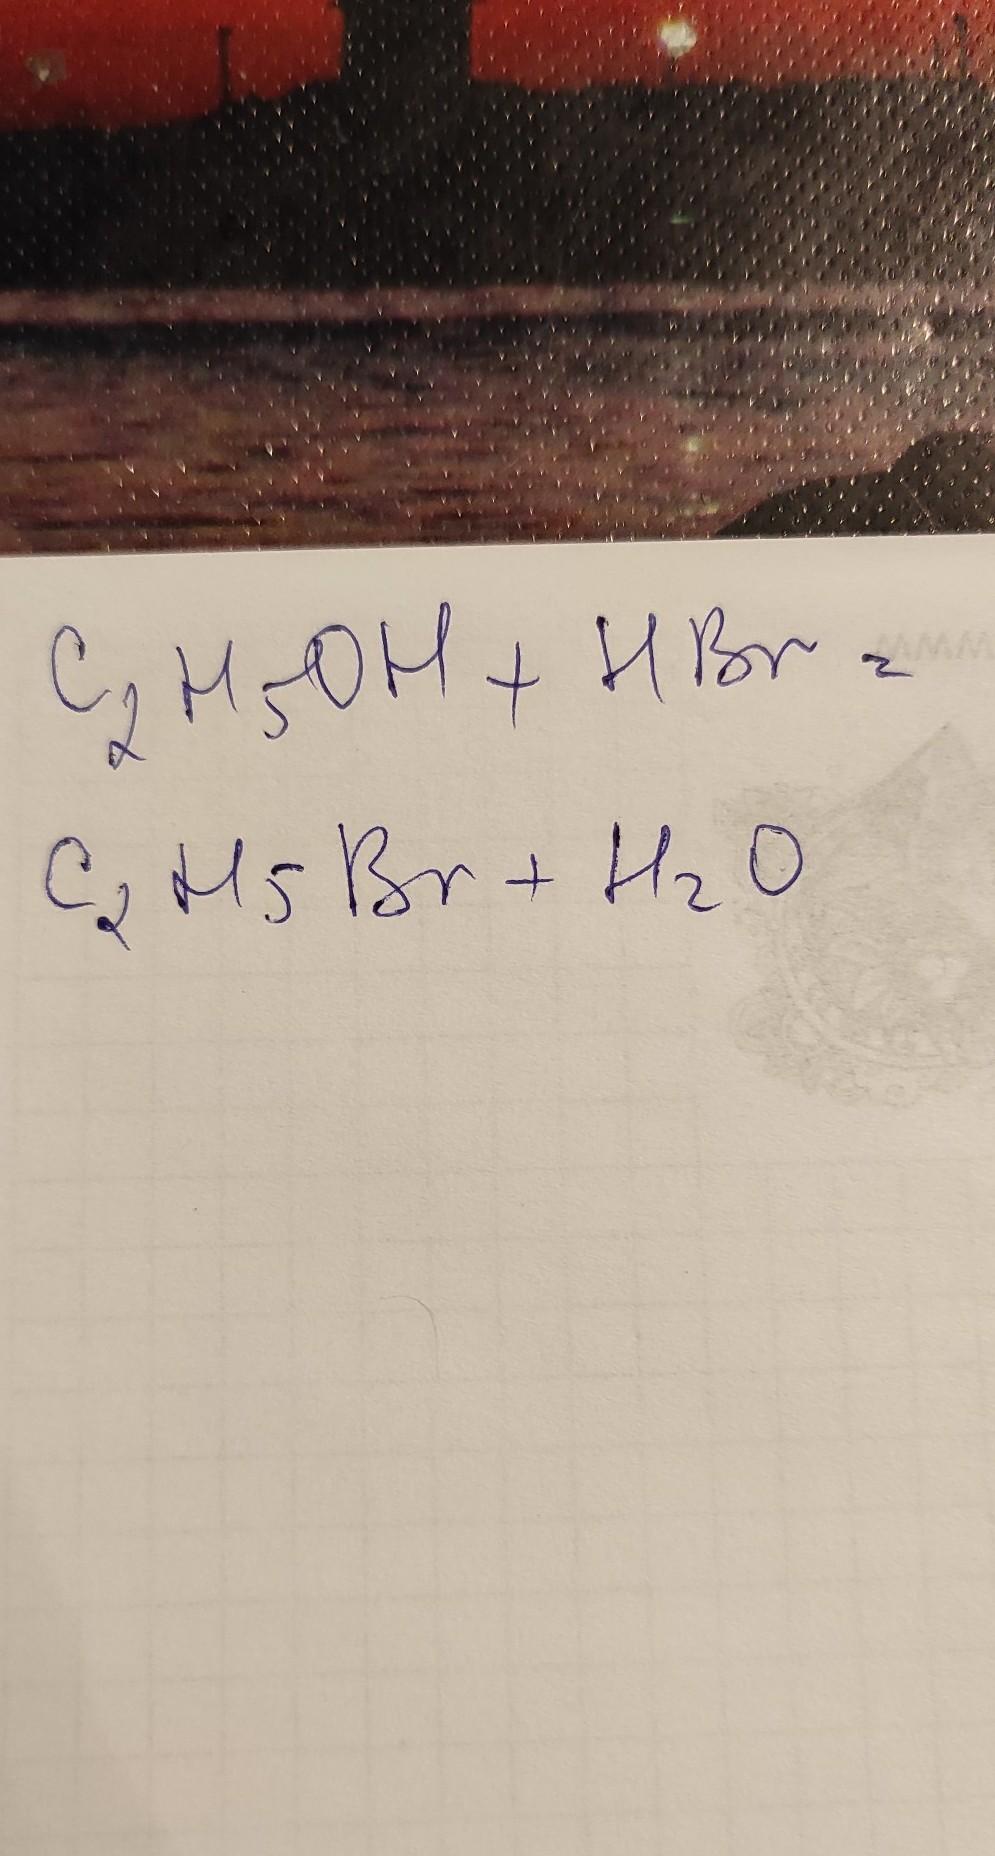 C₂H₅OH + HBr =
C₂H₅Br + H₂O